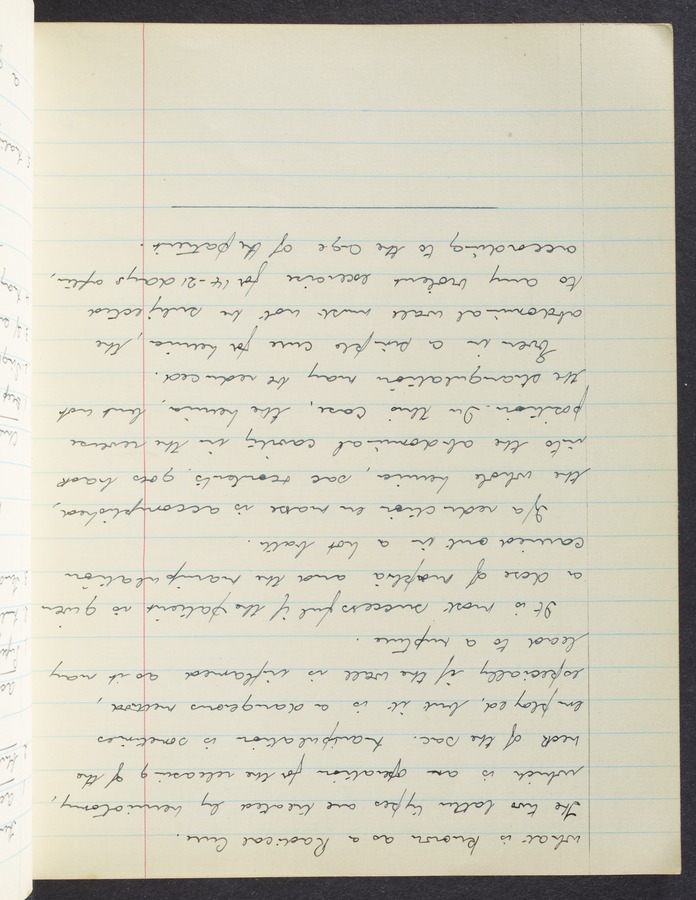 what is known as a Radical Cure.
The two latter types are treated by herniotomy,
which is an operation for the releasing of the
neck of the sac. Manipulation is sometimes
employed, but it is a dangerous method,
especially if the wall is inflamed as it may
lead to a rupture.
It is most successful if the patient is given
a dose of morphia and the manipulation
carried out in a hot bath.
If a reduction en masse is accomplished,
the whole hernia, sac + contents goes back
into the abdominal cavity in the reverse
position. In this case, the hernia, but not
the strangulation may be reduced.
Even in a simple cure for hernia, the
abdominal wall must not be subjected
to any violent excersise for 14-21 days after,
according to the age of the patient.